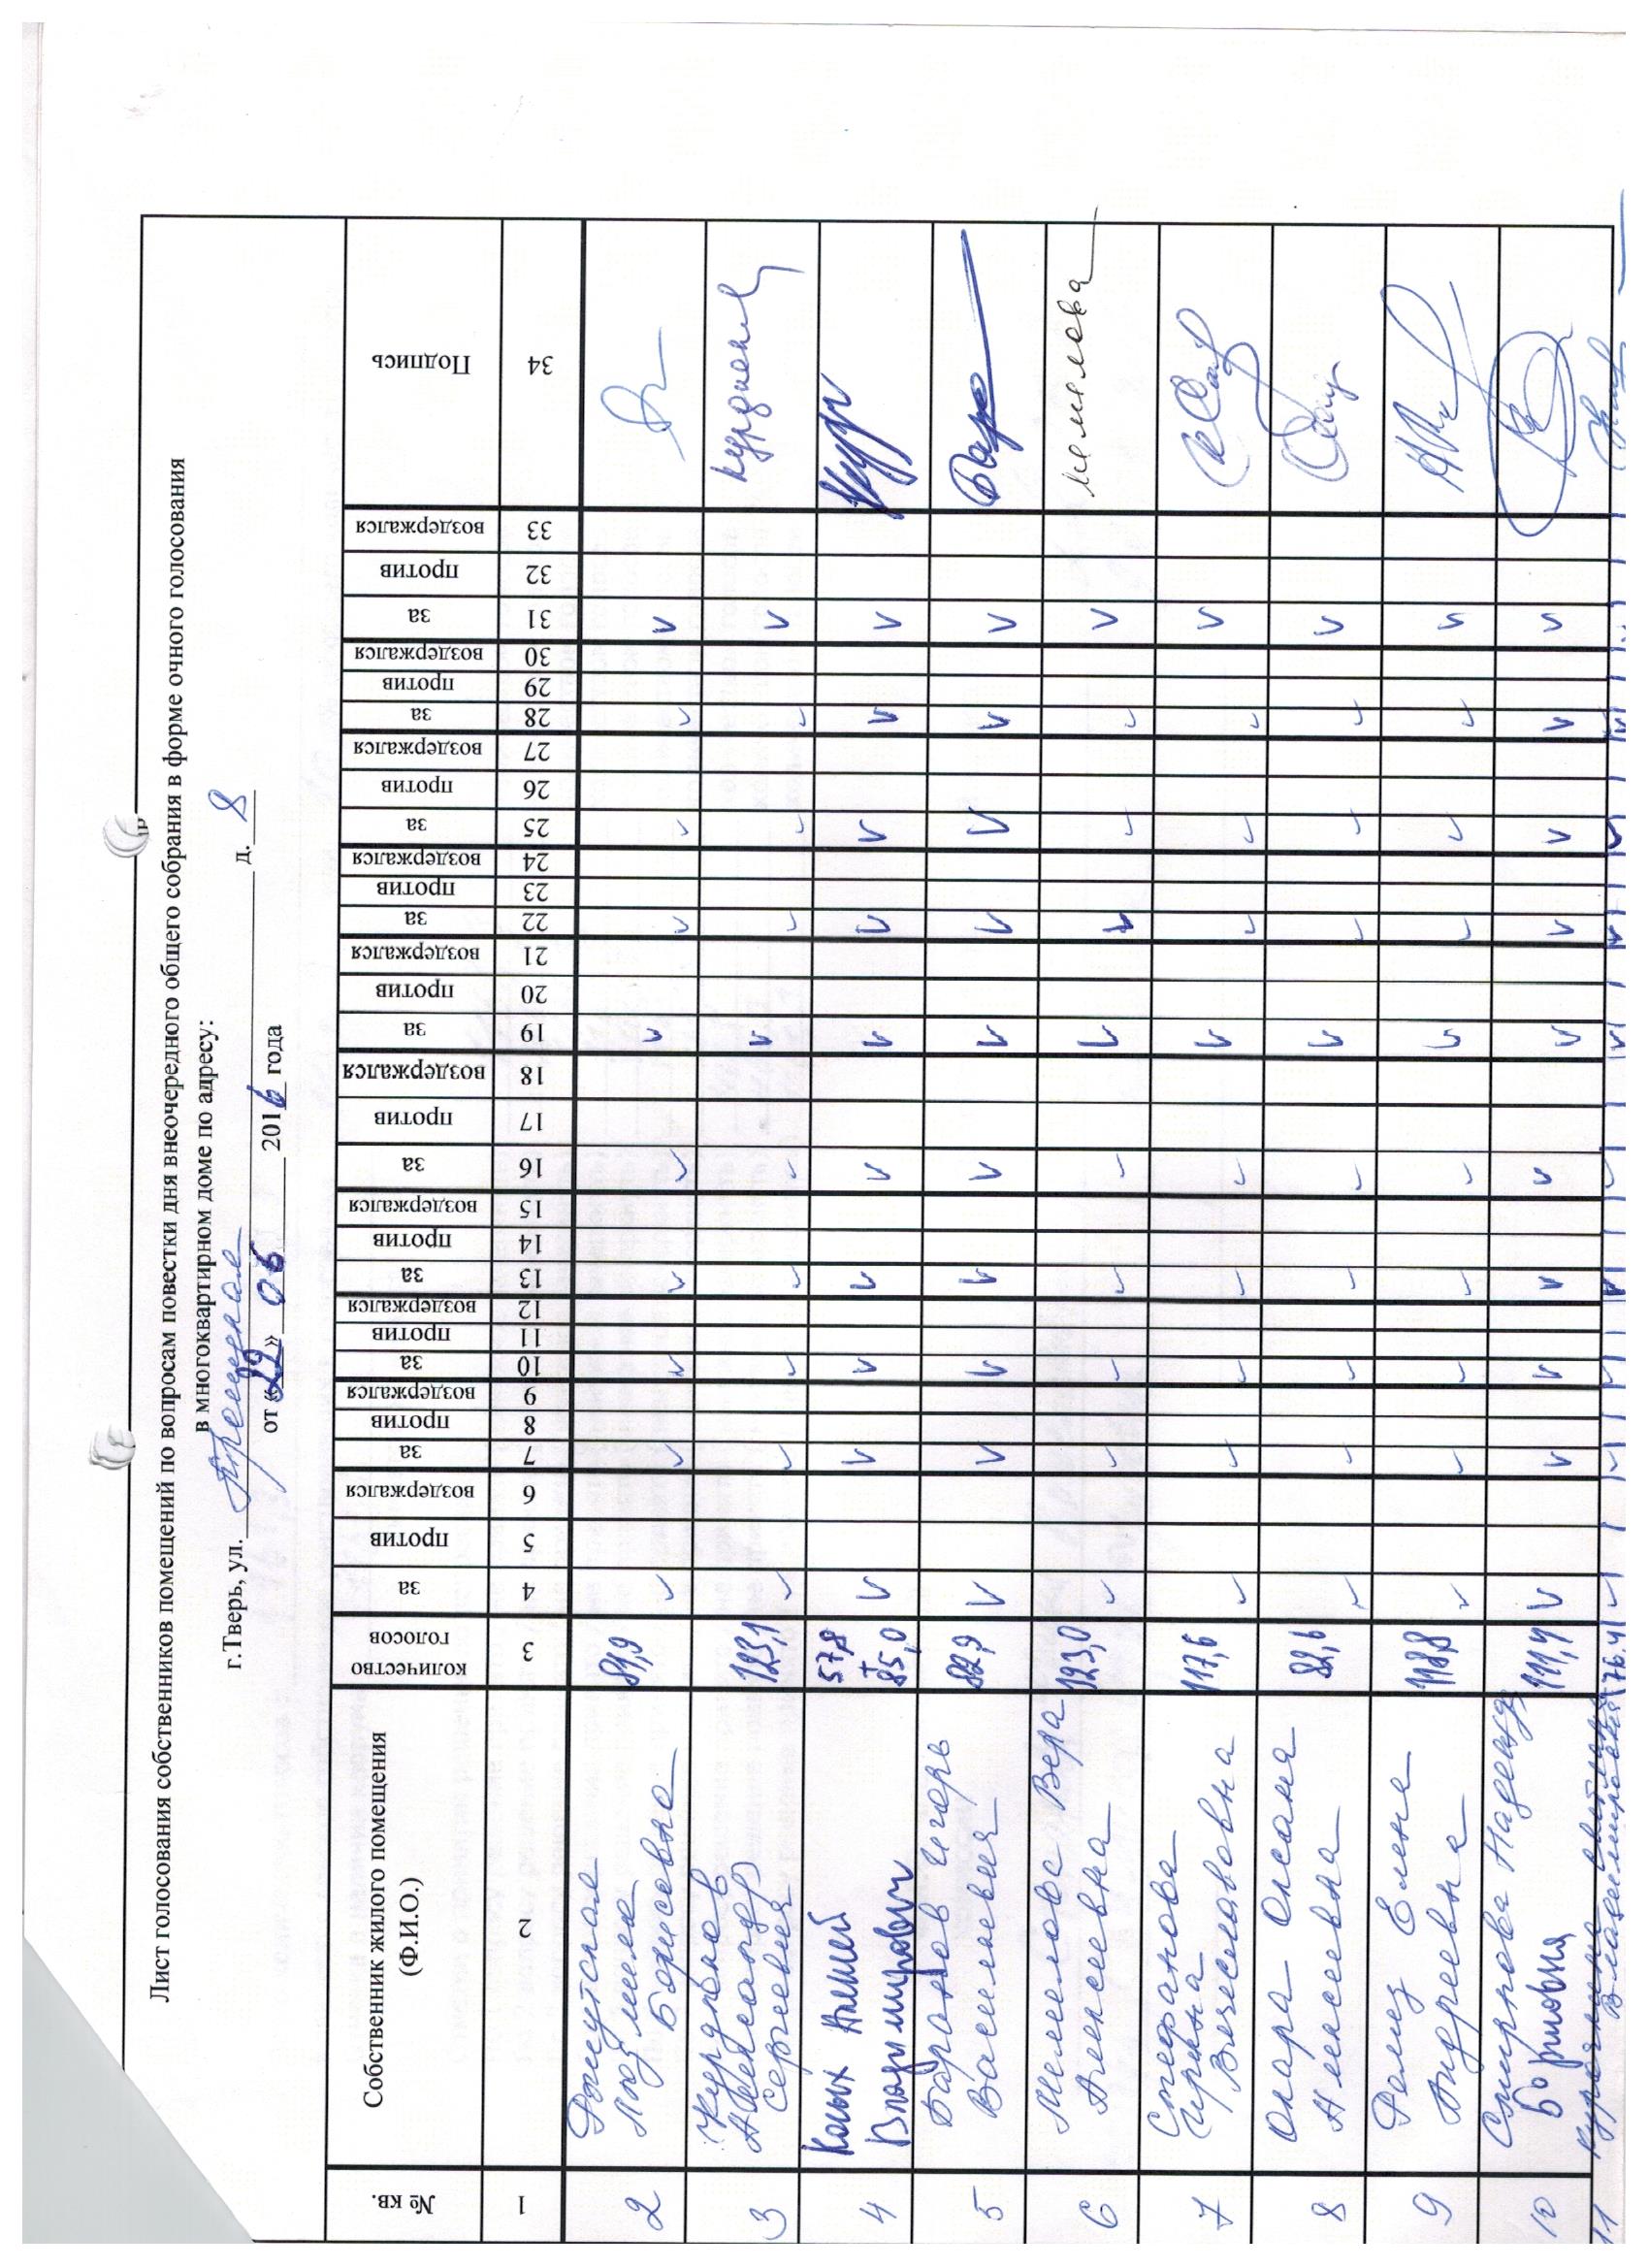 Лист голосования собственников помещений по вопросам повестки дня внеочередного общего собрания в форме очного голосования
в многоквартирном доме по адресу:
г.Тверь, ул. д. 8
от «22» 06 2016 года
№ кв. Собственник жилого помещения (Ф.И.О.) количество голосов за против воздержался за против воздержался за против воздержался за против воздержался за против воздержался за против воздержался за против воздержался за против воздержался за против воздержался за против воздержался Подпись
1 2 3 4 5 6 7 8 9 10 11 12 13 14 15 16 17 18 19 20 21 22 23 24 25 26 27 28 29 30 31 32 33 34
2 Людмила Борисовна 89,9 V V V V V V V V V V
3 Александр Сергеевич 123,1 V V V V V V V V V V
4 Алексей Владимирович 57,8 + 85,0 V V V V V V V V V V
5 Баранов Игорь Васильевич 82,9 V V V V V V V V V V
6 Вера Алексеевна 123,0 V V V V V V V V V V
7 Степанова Ирина Вячеславовна 117,6 V V V V V V V V V V
8 Оксана Алексеевна 82,6 V V V V V V V V V V
9 Елена Андреевна 118,8 V V V V V V V V V V
10 Смирнова Надежда Борисовна 111,4 V V V V V V V V V V
11 Владимировна 76,4